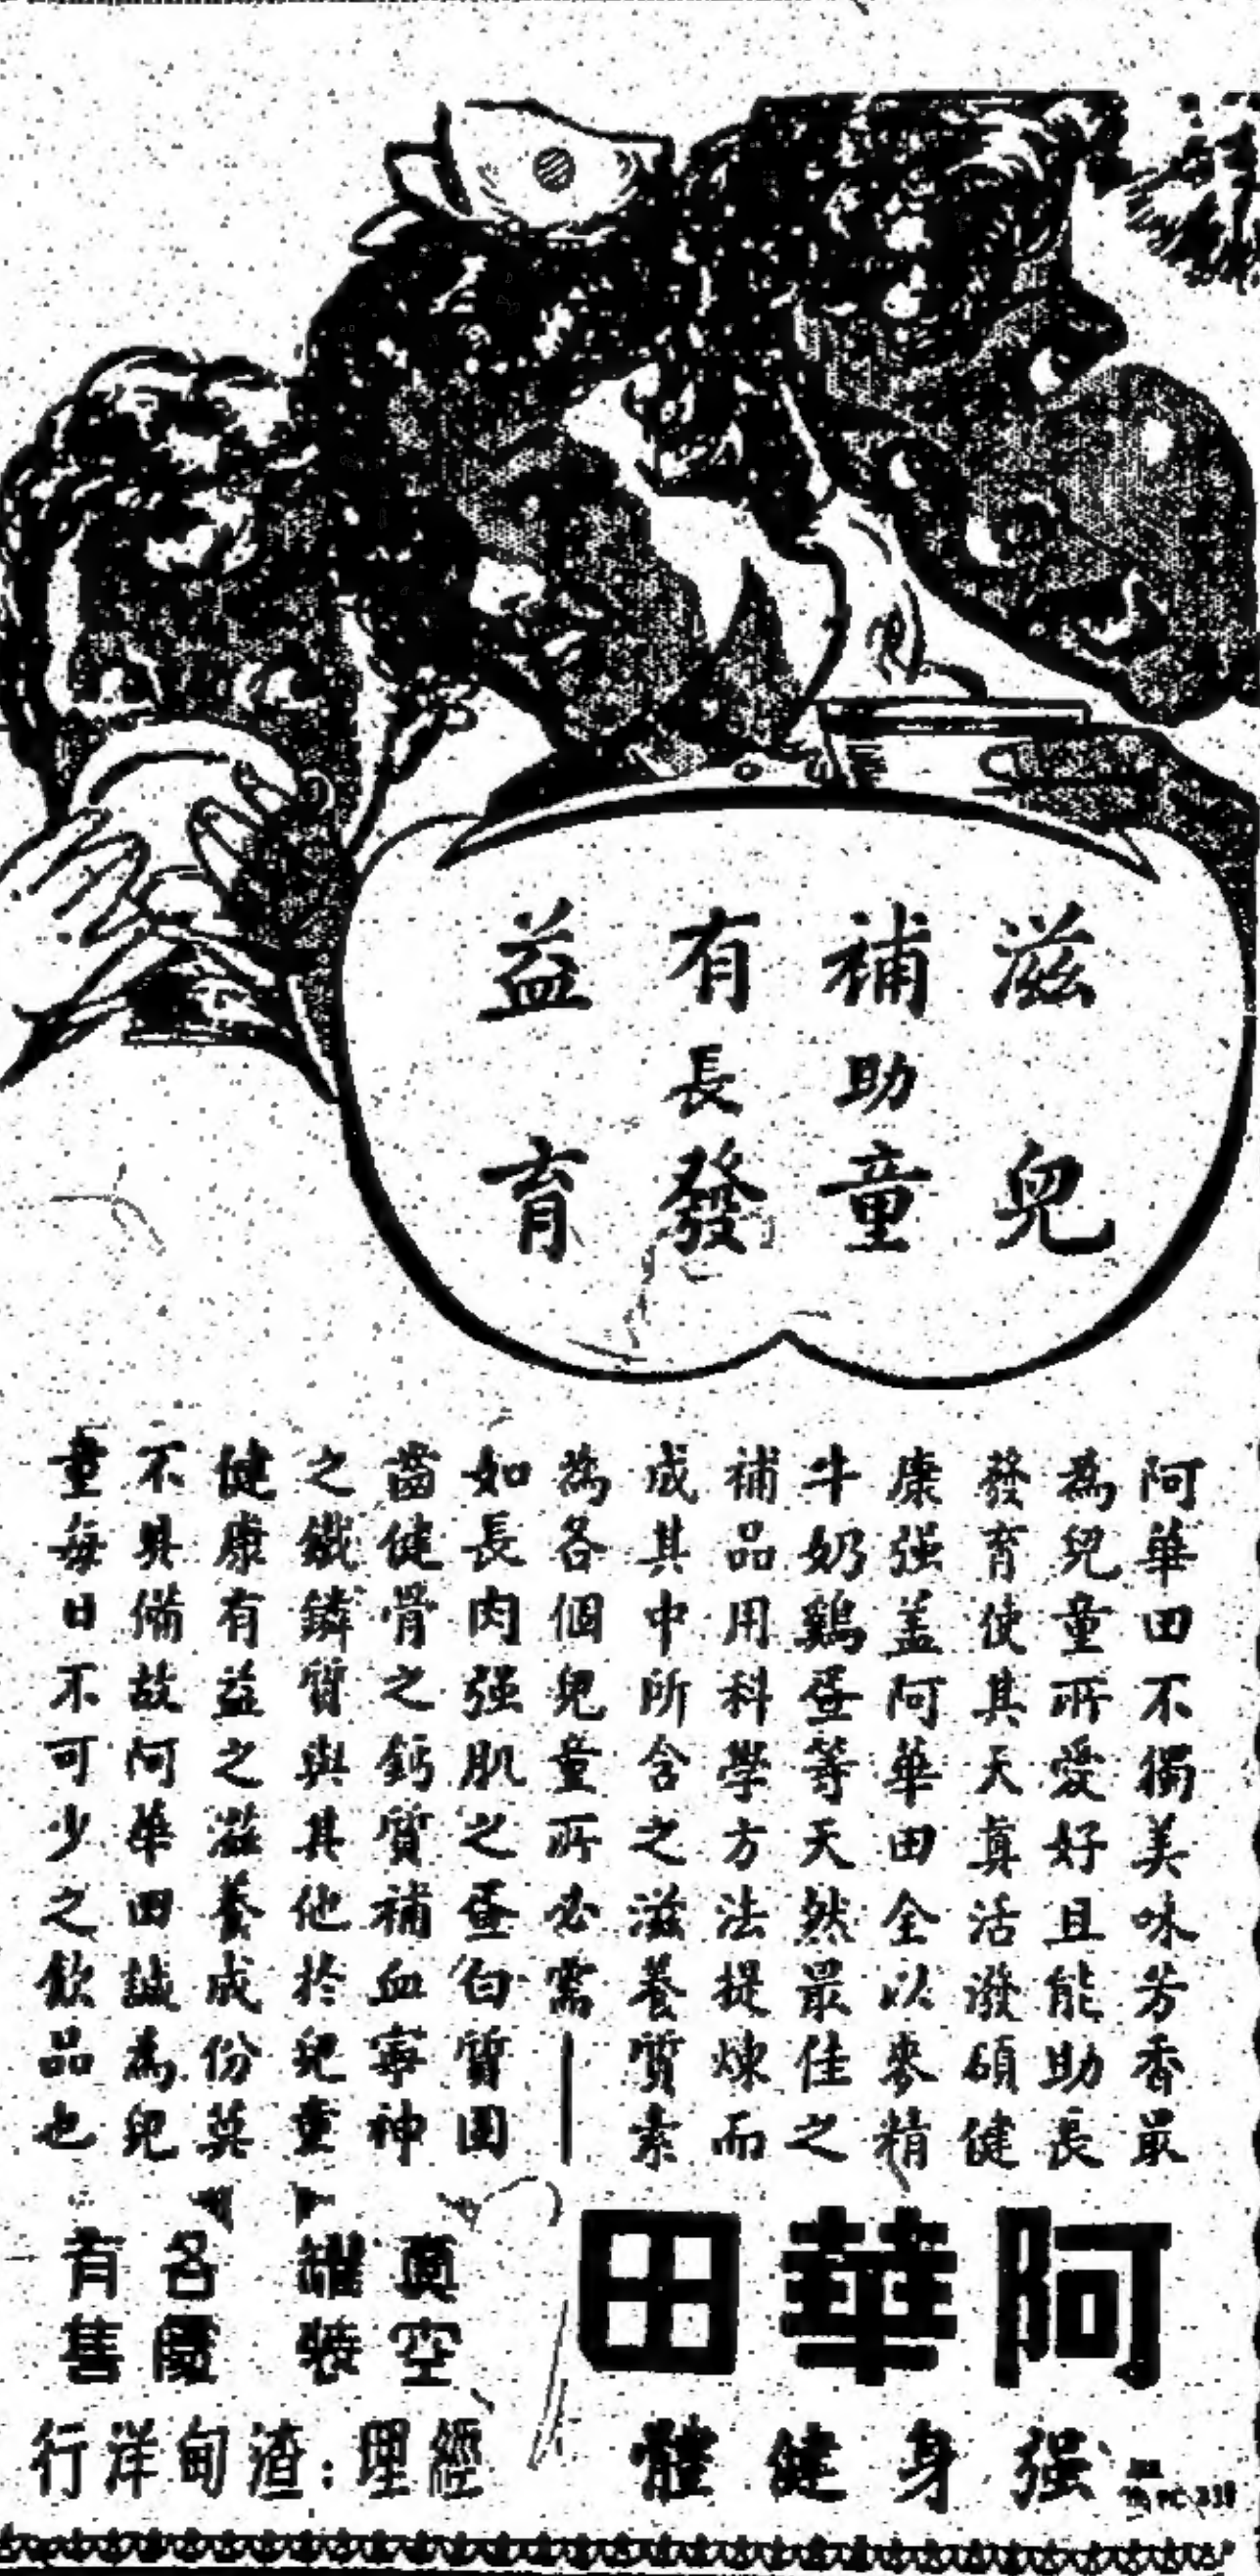 滋補有益
助長
兒童發育
阿華田不獨美味芳香最
為兒童所愛好且能助長
發育使其天真活潑碩健
康强盖阿華田全以麥精
牛奶鷄蛋等天然最佳之
補品用科學方法提煉而
成其中所含之滋養質素
為各個兒童所必需——
如長肉强肌之蛋白質固
齒健骨之鈣質補血寧神
之鐵鏻質與其他於兒童
健康有益之滋養成份莫
不具備故阿華田誠為兒
童每日不可少之飲品也
阿華田
强身健體
真空罐裝
各處有售
經理:渣甸洋行